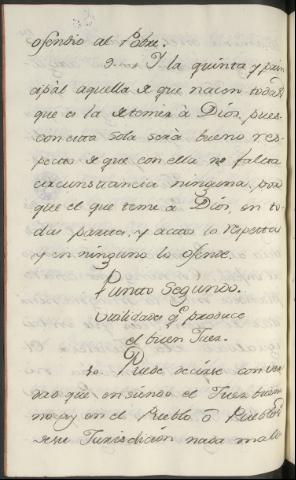 ofendio al Pobre.
9. Y la quinta y prin
cipàl aquella de que nacen todas
que es la de temer à Dios, pues
con esta sola serà bueno res-
pecto de que con ella no faltea
circunstancia ninguna, por
que el que teme à Dios, en to-
das partes, y actos lo respeta
y en ninguno lo ofende.
Punto Segundo.
Utilidades q.e produce
el buen Juez.
10. Puede decirse con ver
dad que en siendo el Juez bueno
no ay en el Pueblo ô Pueblos
de su Jurisdición nada malo